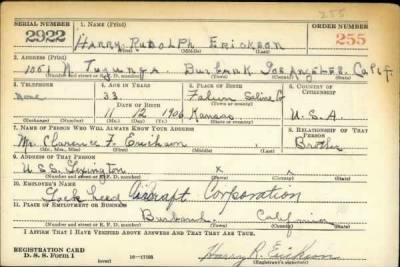 255
SERIAL NUMBER 1. NAME (Print) ORDER NUMBER
2922 HARRY RUDOLPH ERICKSON 255
(First) (Middle) (Last)
2. ADDRESS (Print)
1051 N Tujunga Burbank Los Angeles Calif.
(Number and street or R. F. D. number) (Town) (County) (State)
3. TELEPHONE 4. AGE IN YEARS 5. PLACE OF BIRTH 6. COUNTRY OF CITIZENSHIP
none 33 Falun Saline Co
(Town) (County)
DATE OF BIRTH
11 12 1906 Kansas U.S.A.
(Exchange) (Number) (Mo.) (Day) (Yr.) (State or country)
7. NAME OF PERSON WHO WILL ALWAYS KNOW YOUR ADDRESS 8. RELATIONSHIP OF THAT PERSON
Mr. Clarence F Erickson Brother
(Mr., Mrs., Miss) (First) (Middle) (Last)
9. ADDRESS OF THAT PERSON
USS Lexington x x
(Number and street or R. F. D. number) (Town) (County) (State)
10. EMPLOYER'S NAME
Lockheed Aircraft Corporation
11. PLACE OF EMPLOYMENT OR BUSINESS
Burbank California
(Number and street or R. F. D. number) (Town) (County) (State)
I AFFIRM THAT I HAVE VERIFIED ABOVE ANSWERS AND THAT THEY ARE TRUE.
REGISTRATION CARD
D. S. S. Form 1 (over) 16—17105 Harry R. Erickson
(Registrant's signature)